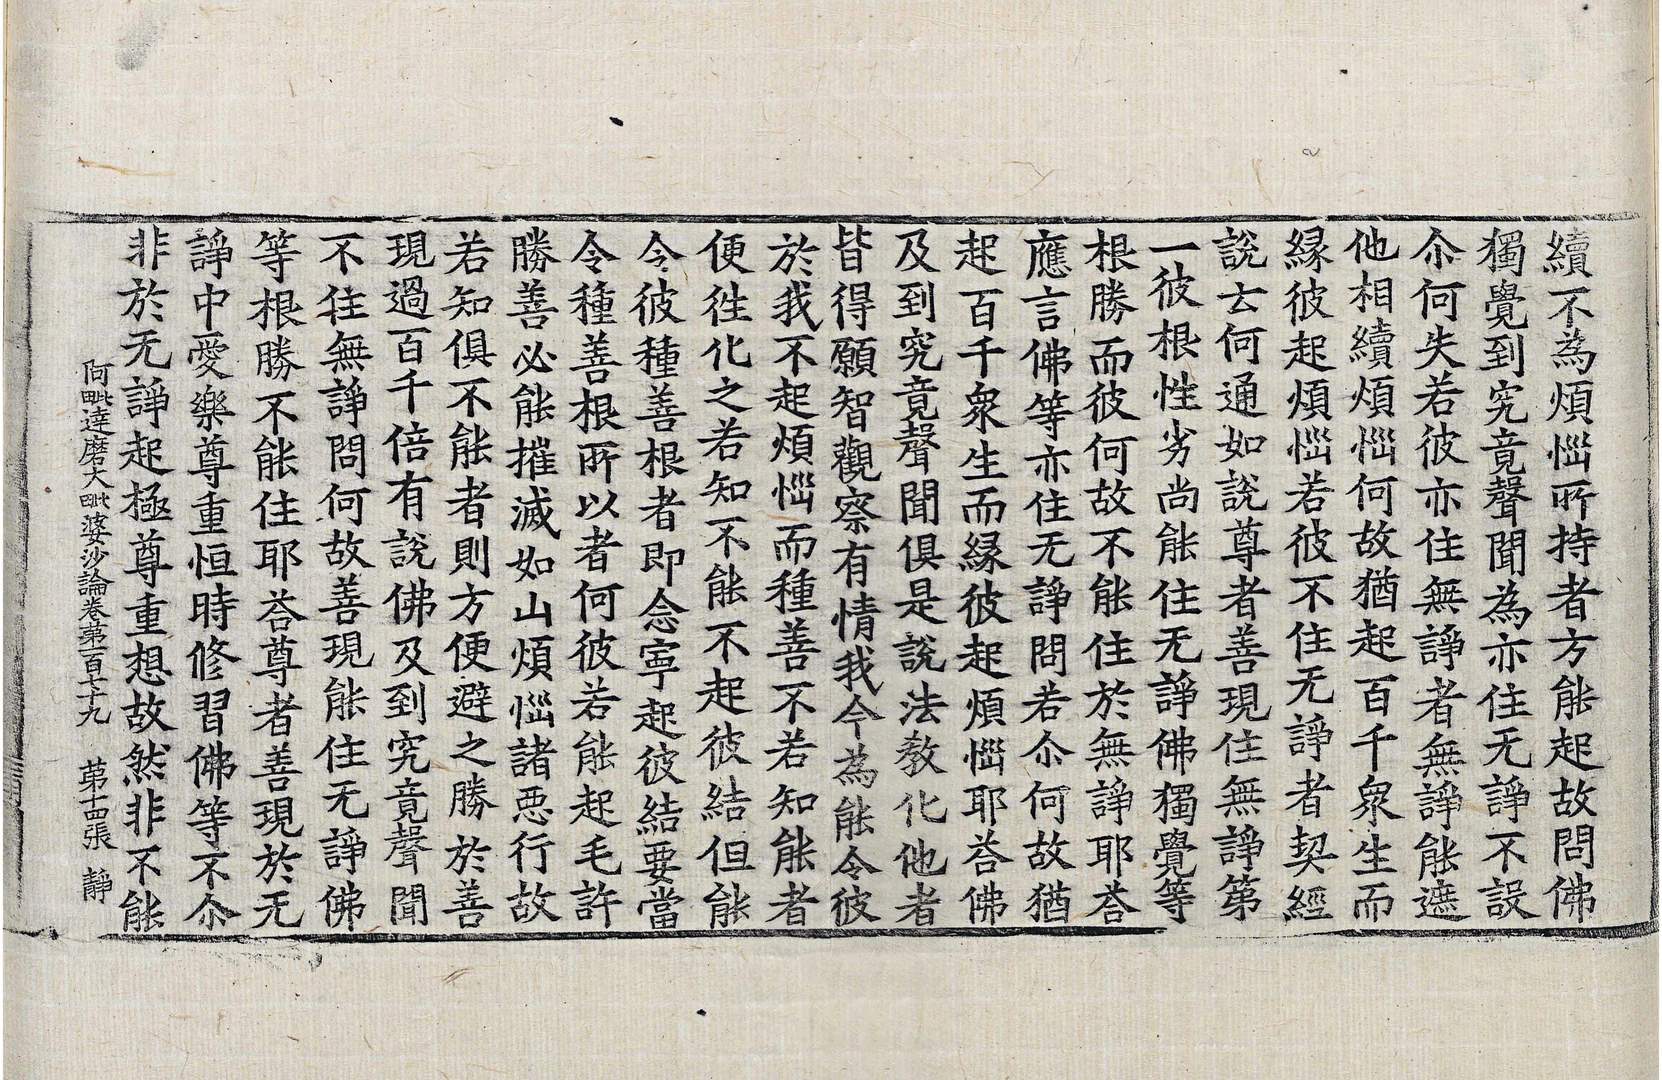 續不為煩惱所持者方能起故問佛
獨覺到究竟聲聞為亦住无諍不設
尒何失若彼亦住無諍者無諍能遮
他相續煩惱何故猶起百千衆生而
縁彼起煩惱若彼不住无諍者契經
說云何通如說尊者善現住無諍第
一彼根性劣尚能住无諍佛獨覺等
根勝而彼何故不能住於無諍耶荅
應言佛等亦住无諍問若尒何故猶
起百千衆生而縁彼起煩惱耶荅佛
及到究竟聲聞俱是說法教化他者
皆得願智觀察有情我今為能令彼
於我不起煩惱而種善不若知能者
便徃化之若知不能不起彼結但能
令彼種善根者即念寜起彼結要當
令種善根所以者何彼若能起毛許
勝善必能摧滅如山煩惱諸惡行故
若知俱不能者則方便避之勝於善
現過百千倍有說佛及到究竟聲聞
不住無諍問何故善現能住无諍佛
等根勝不能住耶荅尊者善現於无
諍中愛樂尊重恒時修習佛等不尒
非於无諍起極尊重想故然非不能
阿毗達磨大毗婆沙論卷第一百七十九 第十四張 靜